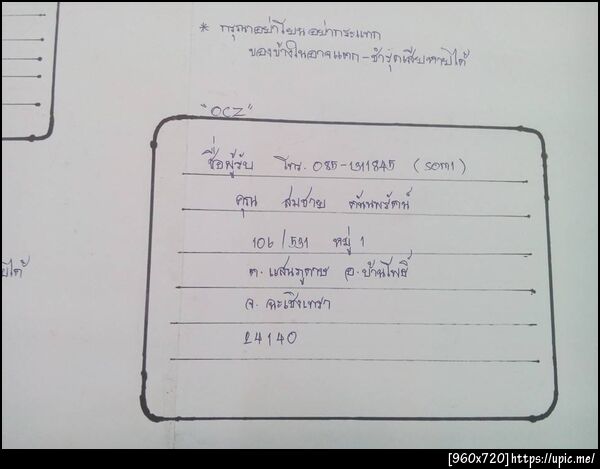 * กรุณาอย่าโยนอย่ากระแทก
ของข้างในอาจแตก-ชำรุดเสียหายได้
"OCZ"
ชื่อผู้รับ โทร. 085-1311845
คุณ สมชาย ตันนพรัตน์
106/531 หมู่ 1
ต. แสนภูดาษ อ. บ้านโพธิ์
จ. ฉะเชิงเทรา
24140
ยได้
[960x720]https://upic.me/